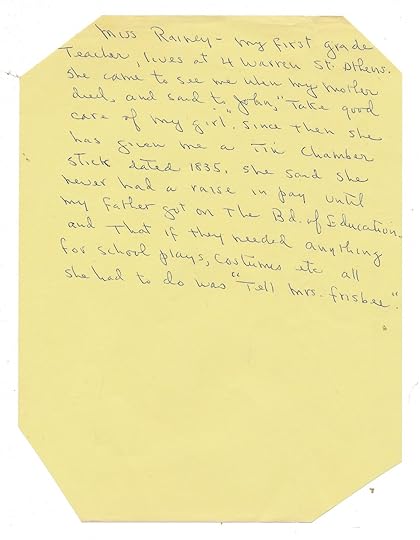 Miss Rainey - my first grade
Teacher, lives at 4 Warren St. Athens.
She came to see me when my mother
died, and said to John, "Take good
care of my girl". Since then she
has given me a Tin Chamber
stick dated 1835. She said she
never had a raise in pay until
my father got on The Bd. of Education
and That if they needed anything
for school plays, costumes etc all
she had to do was "Tell Mrs. Frisbee".